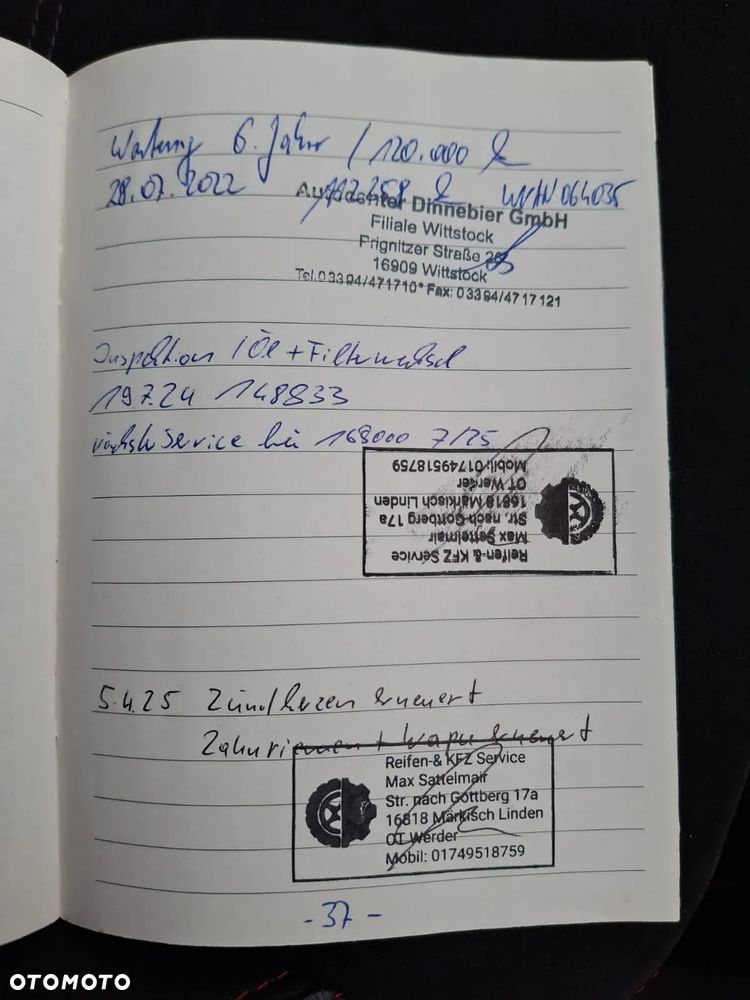 Wartung 6. Jahr / 120.000 km
28.07.2022 117.258 km WVAN064035
Autocenter Dinnebier GmbH
Filiale Wittstock
Prignitzer Straße
16909 Wittstock
Tel.03394/471710* Fax: 03394/4717121
Inspektion / Öl + Filterwechsel
19.7.24 148833
nächste Service bei 168000 7/25
Reifen-& KFZ Service
Max Sattelmair
Str. nach Gottberg 17a
16818 Märkisch Linden
OT Werder
Mobil: 01749518759
5.4.25 Zündkerzen erneuert
Zahnriemen + Wapu erneuert
Reifen-& KFZ Service
Max Sattelmair
Str. nach Gottberg 17a
16818 Märkisch Linden
OT Werder
Mobil: 01749518759
- 37 -
OTOMOTO